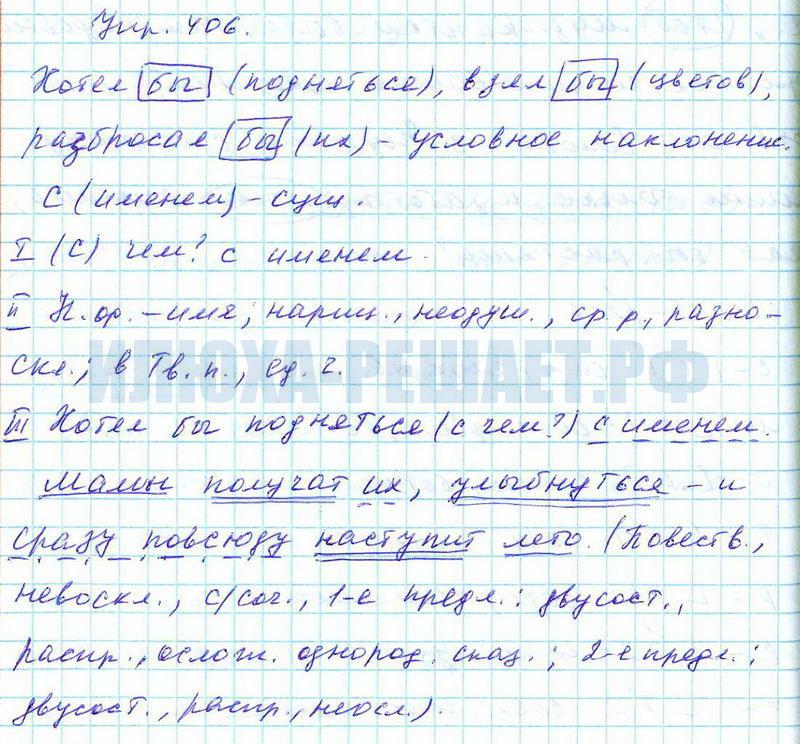 Упр. 406.
Хотел бы (подняться), взял бы (цветов),
разбросал бы (их) – условное наклонение.
С (именем) – сущ.
I (С) чем? с именем.
II Н.ф. – имя; нариц., неодуш., ср.р., разно-
скл.; в Тв. п., ед. ч.
ИЛЮХА-РЕШАЕТ.РФ
III Хотел бы подняться (с чем?) с именем.
Мамы получат их, улыбнуться – и
сразу повсюду наступит лето. (Повеств.,
невоскл., с/соч., 1-е предл.: двусост.,
распр., ослож. однород. сказ.; 2-е предл.:
двусост., распр., неосл.).